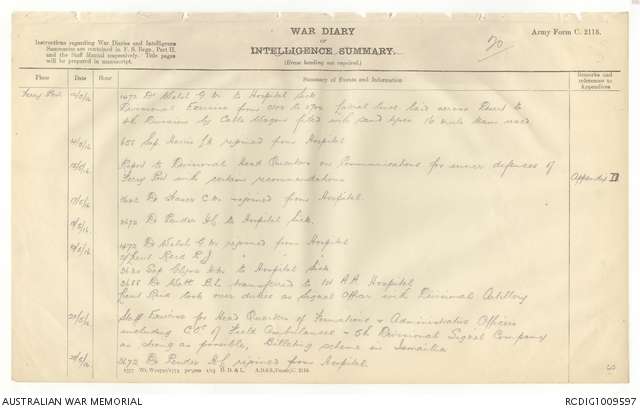 WAR DIARY
or
INTELLIGENCE SUMMARY.
(Erase heading not required.)
Army Form C. 2118.
Instructions regarding War Diaries and Intelligence
Summaries are contained in F. S. Regs., Part II.
and the Staff Manual respectively. Title pages
will be prepared in manuscript.
Place
Date
Hour
Summary of Events and Information
Remarks and
references to
Appendices
Ferry Post
1472 Dr Walsh G W to Hospital Sick
Divisional Exercise from 0900 to 1700 laid across Desert to
4th Division by Cable Wagons fitted with sand tyres 16 mile used
655 Sap Harris J A rejoined from Hospital
Report to Divisional Head Quarters on Communications for inner defences of
Ferry Post with certain recommendations
Appendix D
Dr C W rejoined from Hospital
3672 Dr Pender H C to Hospital Sick.
1472 Dr Walsh G W rejoined from Hospital
2/Lieut Reid R J " " "
3620 Sap to Hospital Sick
3655 Dr Watt B L transferred to 1st A A Hospital
Lieut Reid took over duties as Signal Officer with Divisional Artillery
Staff Exercise for Head Quarters of Formations & Administrative Officers
including COs of Field Ambulances & 5th Divisional Signal Company
as strong as possible, Billeting scheme in Ismailia
3672 Dr Pender H C rejoined from Hospital.
AUSTRALIAN WAR MEMORIAL
RCDIG1009597